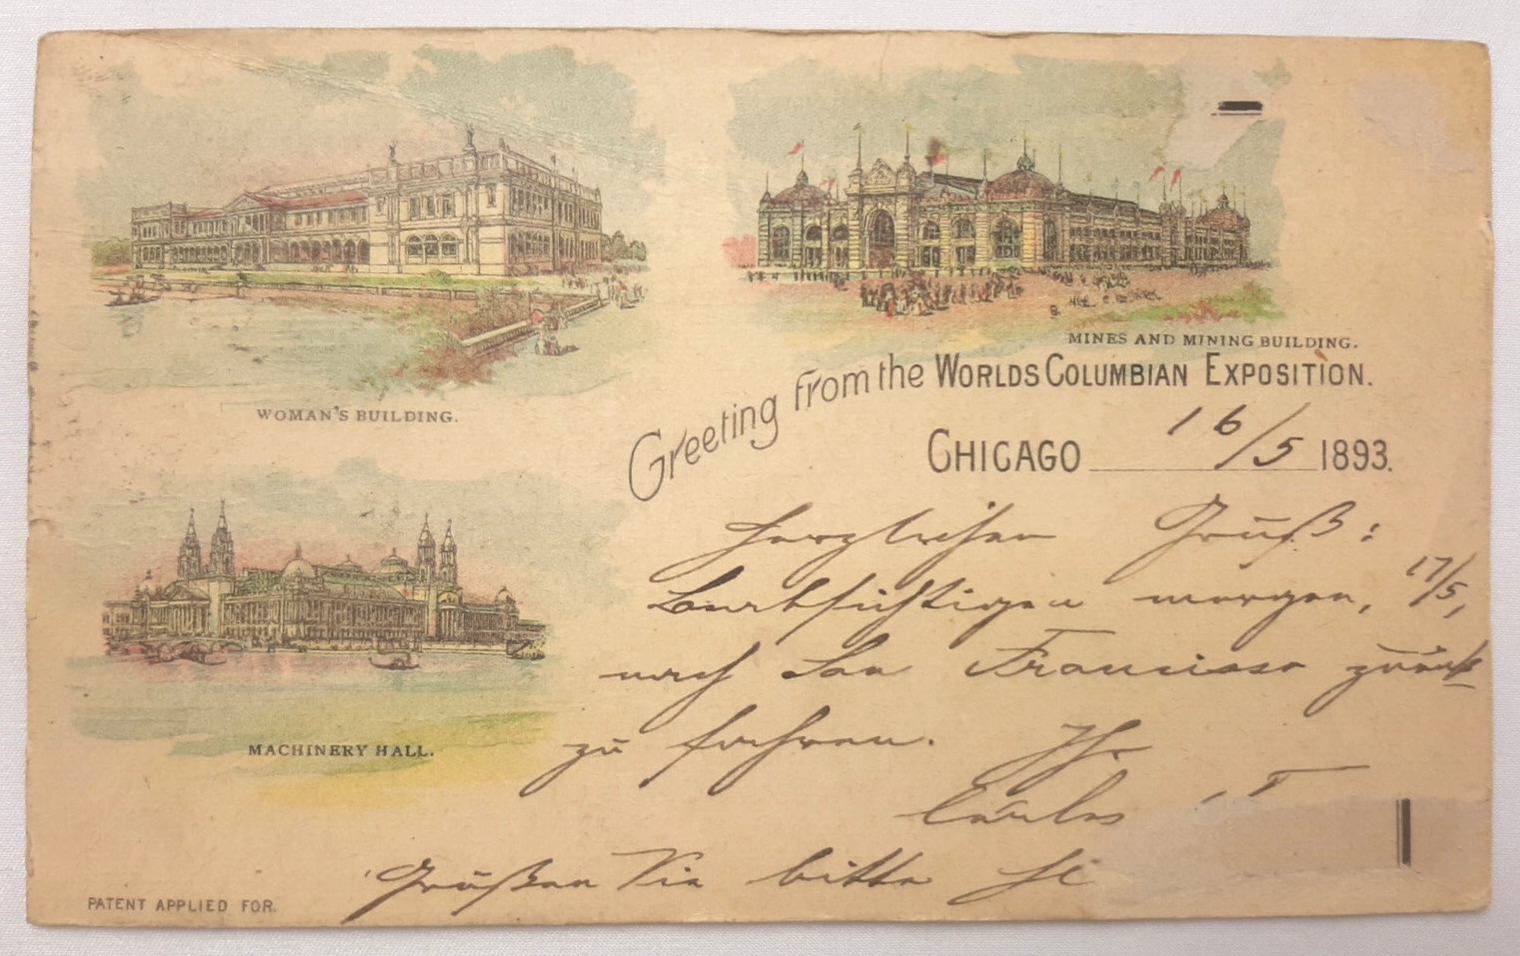 WOMAN'S BUILDING.
MINES AND MINING BUILDING.
Greeting from the WORLDS COLUMBIAN EXPOSITION.
CHICAGO 16/5 1893.
Herzlichen Gruß:
Beabsichtigen morgen, 17/5,
nach San Francisco zurück
zu fahren. Ihr
Carlos
MACHINERY HALL.
Grüßen Sie bitte
PATENT APPLIED FOR.